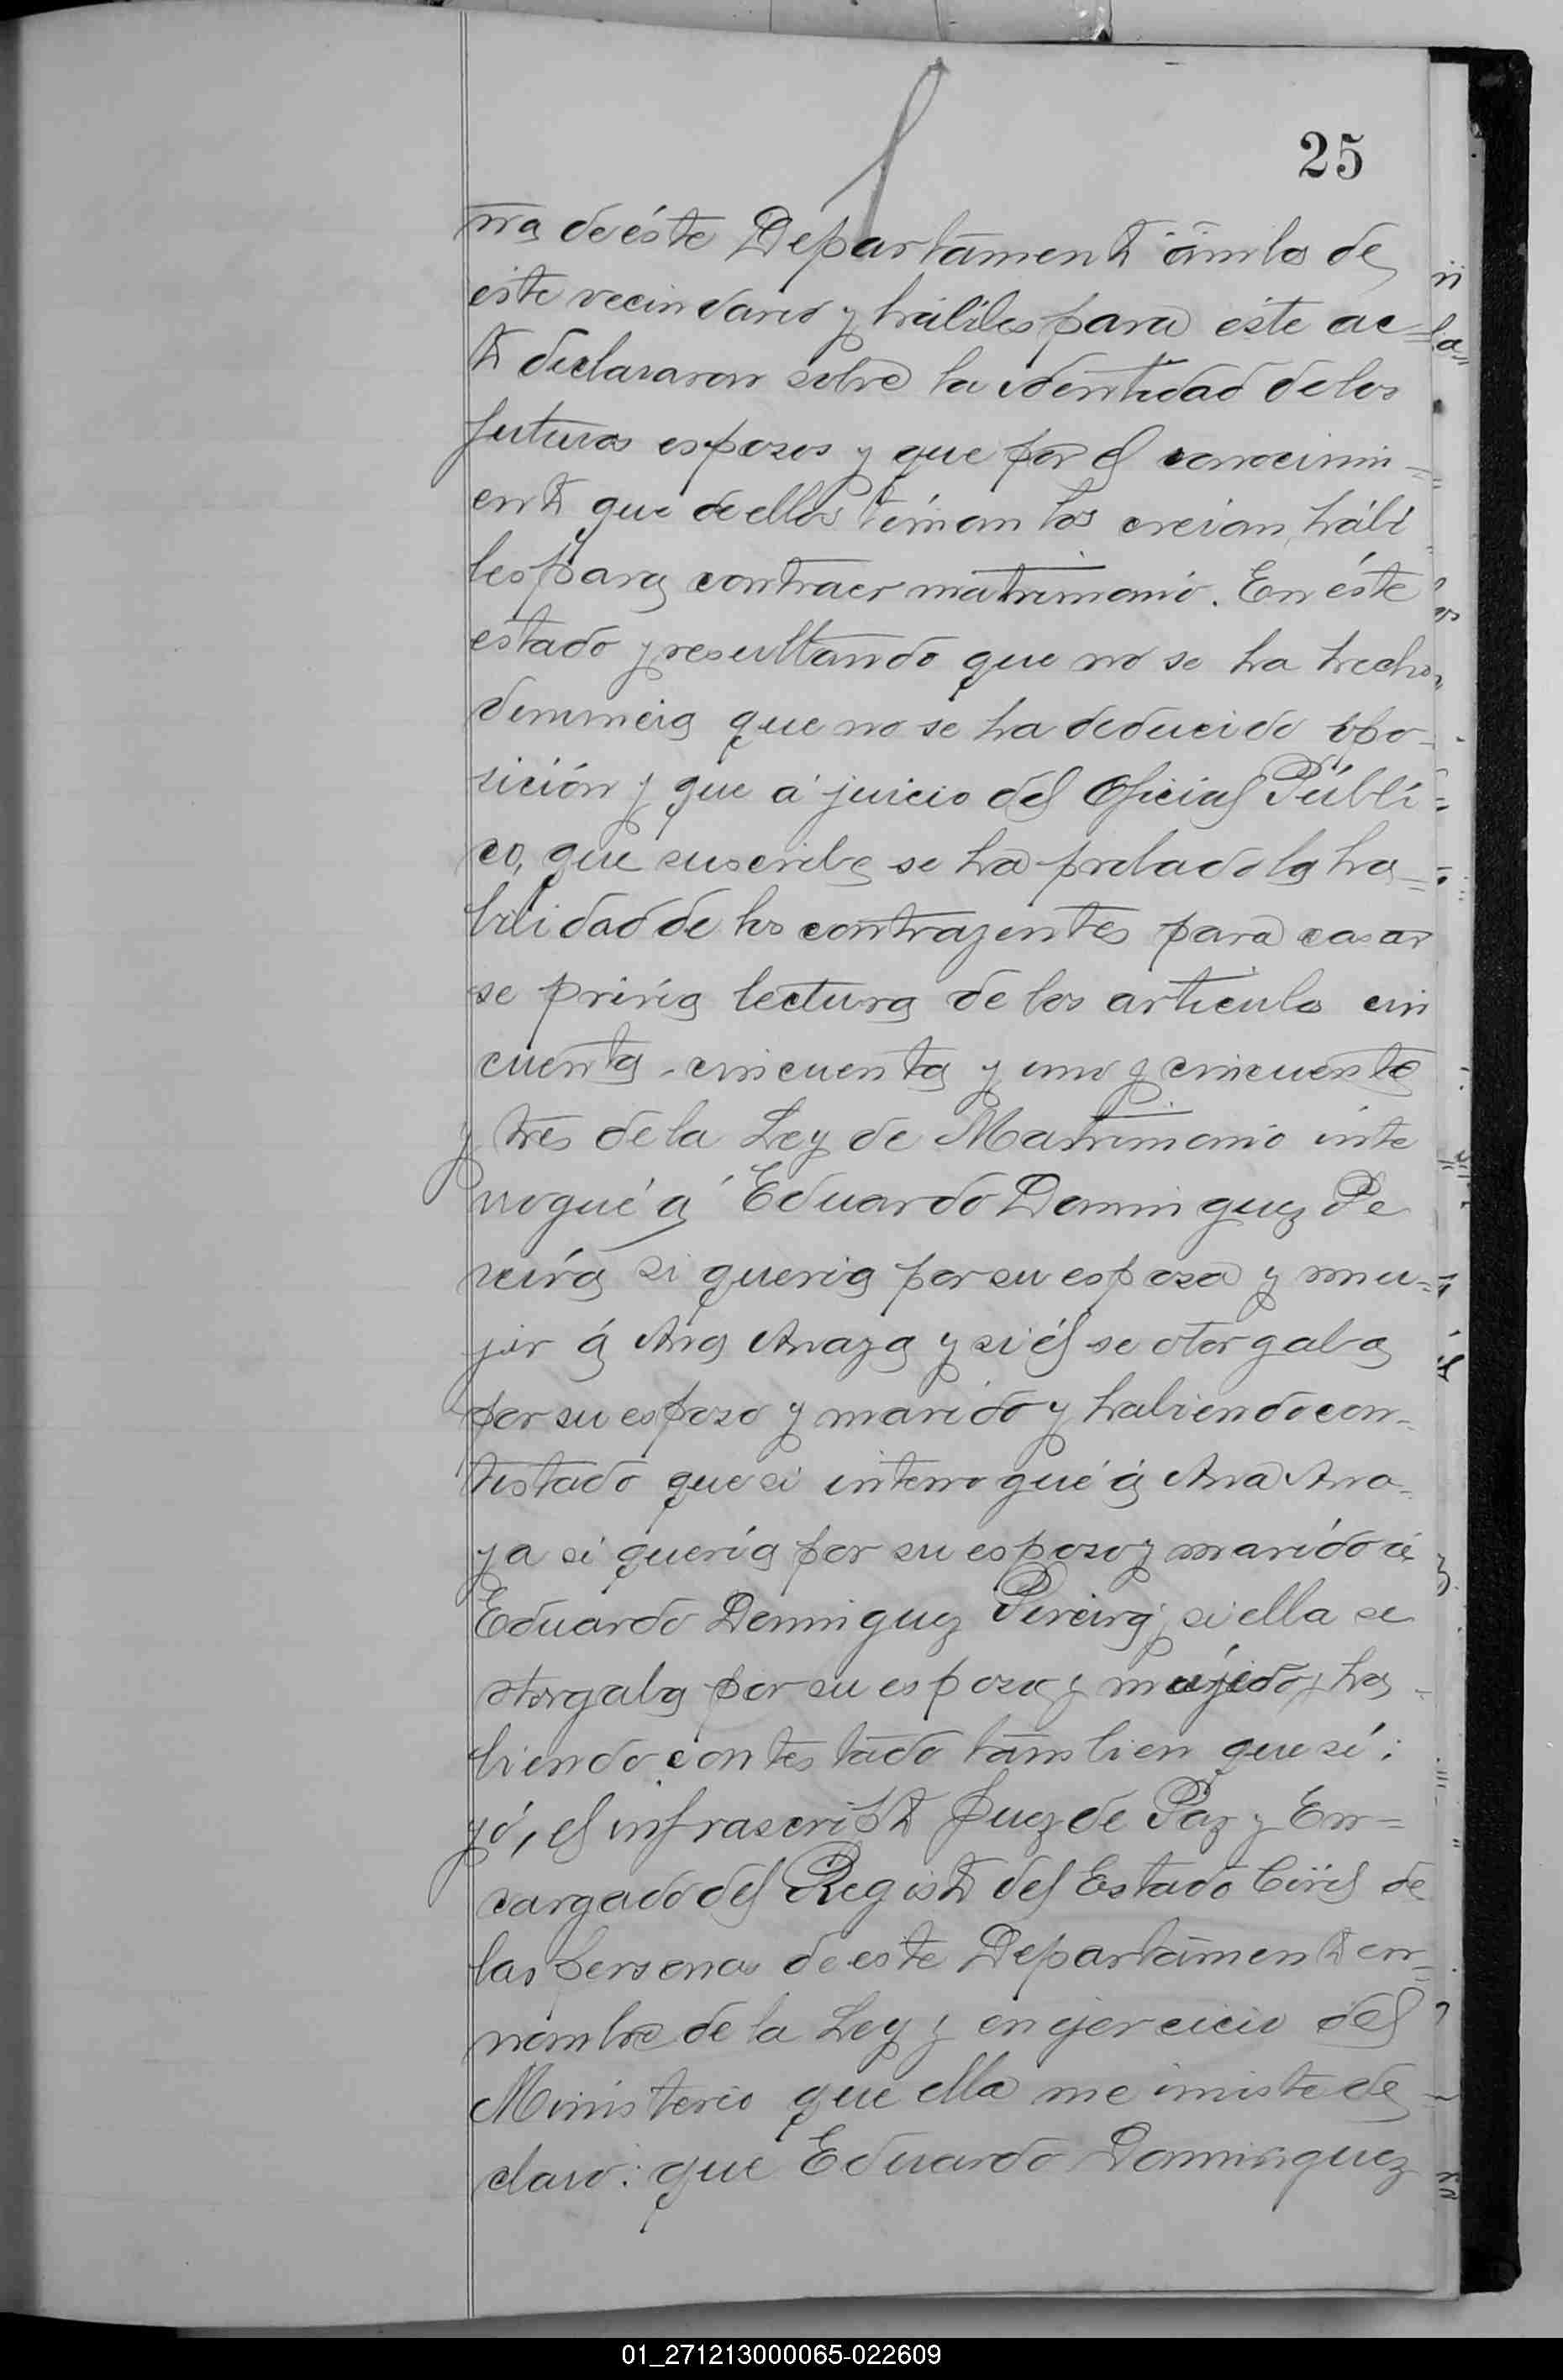 25
rra de éste Departamento ambos de
este vecindario y hábiles para este ac=
to declararon sobre la identidad de los
futuros esposos y que por el conocimi=
ento que de ellos tenían los creian, hábi
les para contraer matrimonio. En éste
estado y resultando que no se ha hecho
denuncia que no se ha deducido opo-
sición y que á juicio del Oficial Públi=
co, que suscribe se ha probado la ha=
bilidad de los contrayentes para casar
se prévia lectura de los articulos cin
cuenta - cincuenta y uno y cincuenta
y tres de la Ley de Matrimonio inte
rrogué á Eduardo Dominguez Pe
reira si queria por su esposa y mu=
jer á Ana Anaya y si él se otorgaba
por su esposo y marido y habiendo con-
testado que si interrogué á Ana Ana-
ya si quería por su esposo y marido á
Eduardo Dominguez Pereira, si ella se
otorgaba por su esposa y ha-
biendo contestado tambien que sí;
yó, el infrascrito Juez de Paz y En=
cargado del Registro del Estado Civil de
las personas de este Departamento en
nombre de la Ley y en ejercicio del
Ministerio que ella me inviste de
claro: que Eduardo Dominguez
01_271213000065-022609